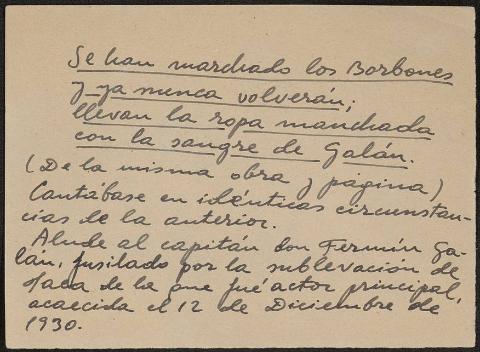 Se han marchado los Borbones
y ya nunca volverán;
llevan la ropa manchada
con la sangre de Galán.
(De la misma obra y página)
Cantábase en idénticas circunstan-
cias de la anterior.
Alude al capitán don Fermín Ga-
lán, fusilado por la sublevación de
Jaca de la que fué actor principal,
acaecida el 12 de Diciembre de
1930.